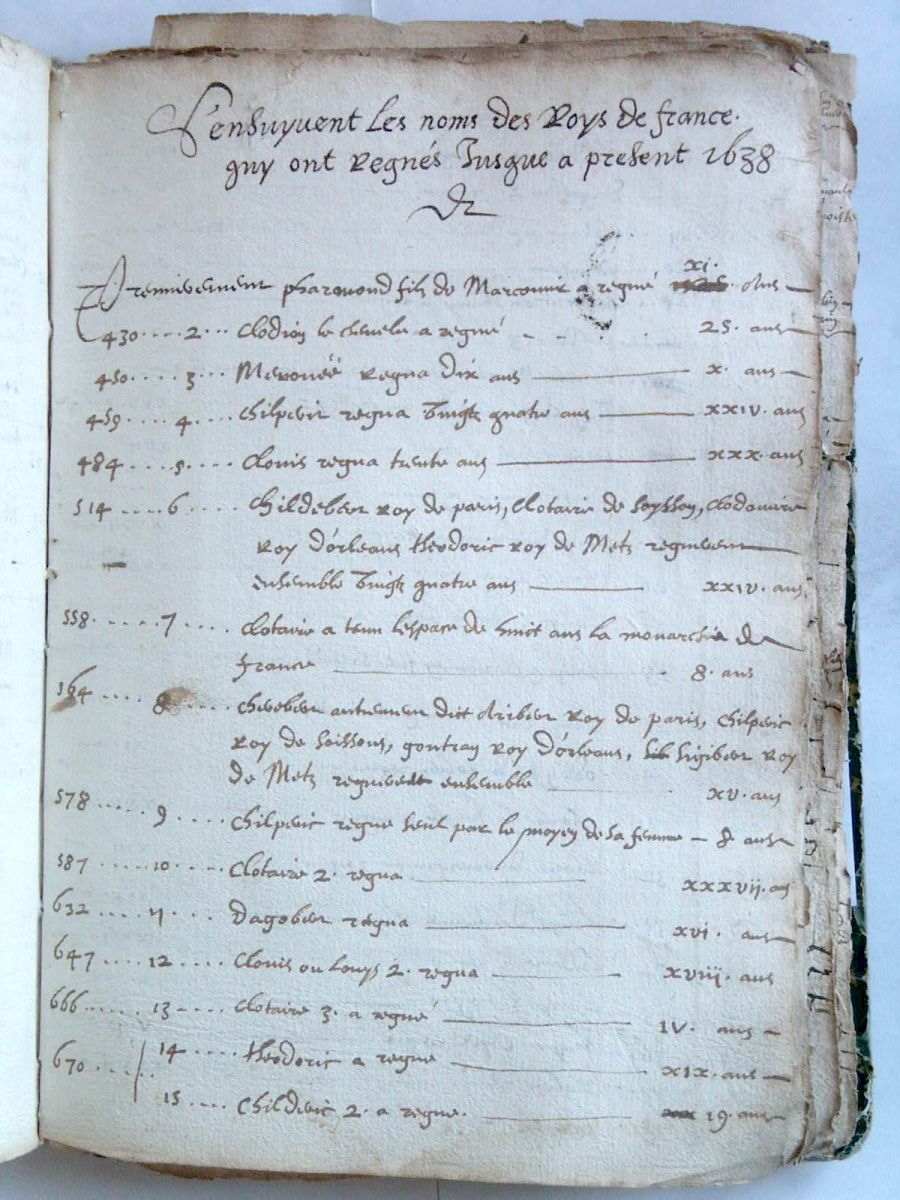 S'ensuyvent les noms des Roys de france.
quy ont Regnés Jusque a present 1638
&
Premierement pharamond fils de Marcomir a regné xi. Ans
430....2... Clodion le chevelu a regné 25. ans
450....3... Merouëë regna dix ans x. ans
459....4.... Chilperic regna vingt quatre ans xxiv. ans
484....5.... Clouis regna trente ans xxx. ans
514....6.... Childeber roy de paris, Clotaire de Soysson, Clodomire
Roy d'orleans theodoric roy de Metz regnerent
ensemble vingt quatre ans xxiv. ans
558.....7.... Clotaire a tenu l'espace de huict ans la monarchie de
france 8. ans
564....8.... Cherebert autrement dict Aribert Roy de paris, Chilperic
Roy de Soissons, gontran roy d'orleans, Sigibert roy
de Metz regnerent ensemble xv. ans
578....9.... Chilperic regne seul par le moyen de sa femme 8 ans
587....10.... Clotaire 2. regna xxxvij. ans
632....11... dagobert regna xvi. ans
647....12.... Clouis ou Louys 2. regna xviii. ans
666.....13.... Clotaire 3. a regné iv. ans
670..... 14.... theodoric a regné xix. ans
15.... Childeric 2. a regné. 19. ans